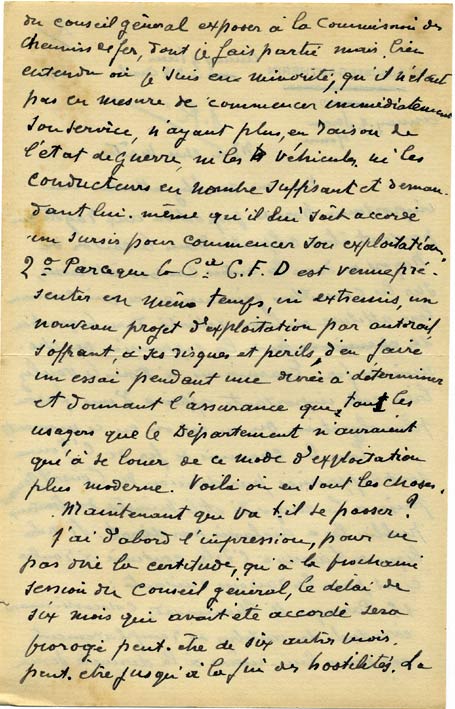 du conseil général exposer à la Commission des
chemins de fer, dont je fais partie mais bien
entendu où je suis en minorité, qu'il n'était
pas en mesure de commencer immédiatement
son service, n'ayant plus, en raison de
l'état de guerre, ni les véhicules, ni les
conducteurs en nombre suffisant et deman-
dant lui-même qu'il lui soit accordé
un sursis pour commencer son exploitation,
2º Parceque la Cie C.F.D est venue pré-
senter en même temps, in extremis, un
nouveau projet d'exploitation par autorail,
s'offrant, à ses risques et périls, d'en faire
un essai pendant une durée à déterminer
et donnant l'assurance que, tant les
usagers que le Département n'auraient
qu'à se louer de ce mode d'exploitation
plus moderne. Voilà où en sont les choses.
Maintenant que va-t-il se passer?
J'ai d'abord l'impression, pour ne
pas dire la certitude, qu'à la prochaine
session du Conseil général, le délai de
six mois qui avait été accordé sera
prorogé peut-être de six autres mois,
peut-être jusqu'à la fin des hostilités. La